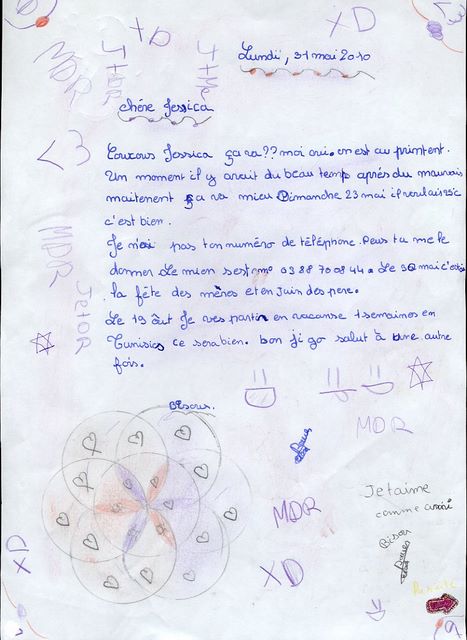 XD
XD
MDR
JtADR
Lundi, 31 mai 2010
chére Jessica
<3
Coucous Jessica ça va?? moi oui. on est au printent.
Un moment il y avait du beau temp aprés du mauvais
maitenent ça va mieu Dimanche 23 mai il
c'est bien.
Je n'ai pas ton numéro de téléphone. Peus tu me le
donner Le mien s'est n° 03 88 70 08 44. Le 30 mai c'était
la fête des mères et en Juin des pere.
Le 19 Août Je vais partir en vacanse 1 semaines en
Tunisies ce sera bien. bon j'i go salut à une autre
fois.
MDR
JetADR
Bisous.
MDR
MDR
XD
XD
Je taime
comme amie
Bisou